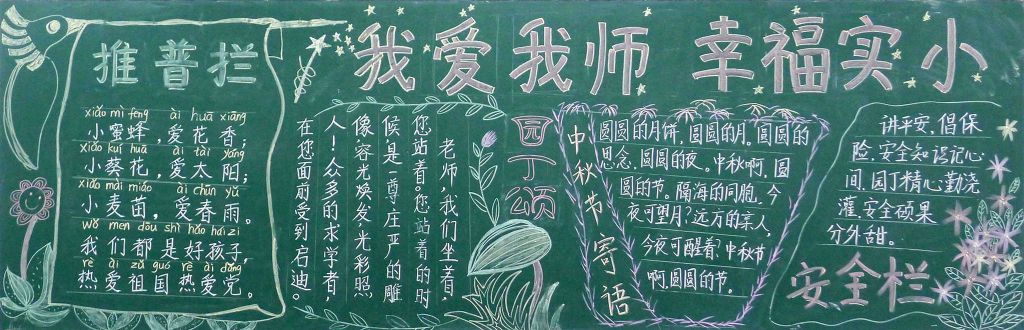 我爱我师 幸福实小
推普栏
xiǎo mì fēng ài huā xiāng
小蜜蜂，爱花香；
xiǎo kuí huā ài tài yáng
小葵花，爱太阳；
xiǎo mài miáo ài chūn yǔ
小麦苗，爱春雨。
wǒ men dōu shì hǎo hái zi
我们都是好孩子，
rè ài zǔ guó rè ài dǎng
热爱祖国热爱党。
园丁颂
老师，我们坐着，
您站着。您站着的时
候，是一尊庄严的雕
像，容光焕发，光彩照
人！众多的求学者，
在您面前受到启迪。
中秋节寄语
圆圆的月饼，圆圆的月。圆圆的
思念，圆圆的夜。中秋啊，圆
圆的节。隔海的同胞，今
夜可望月？远方的亲人，
今夜可醒着？中秋节
啊，圆圆的节。
讲平安，倡保
险，安全知识记心
间，园丁精心勤浇
灌，安全硕果
分外甜。
安全栏